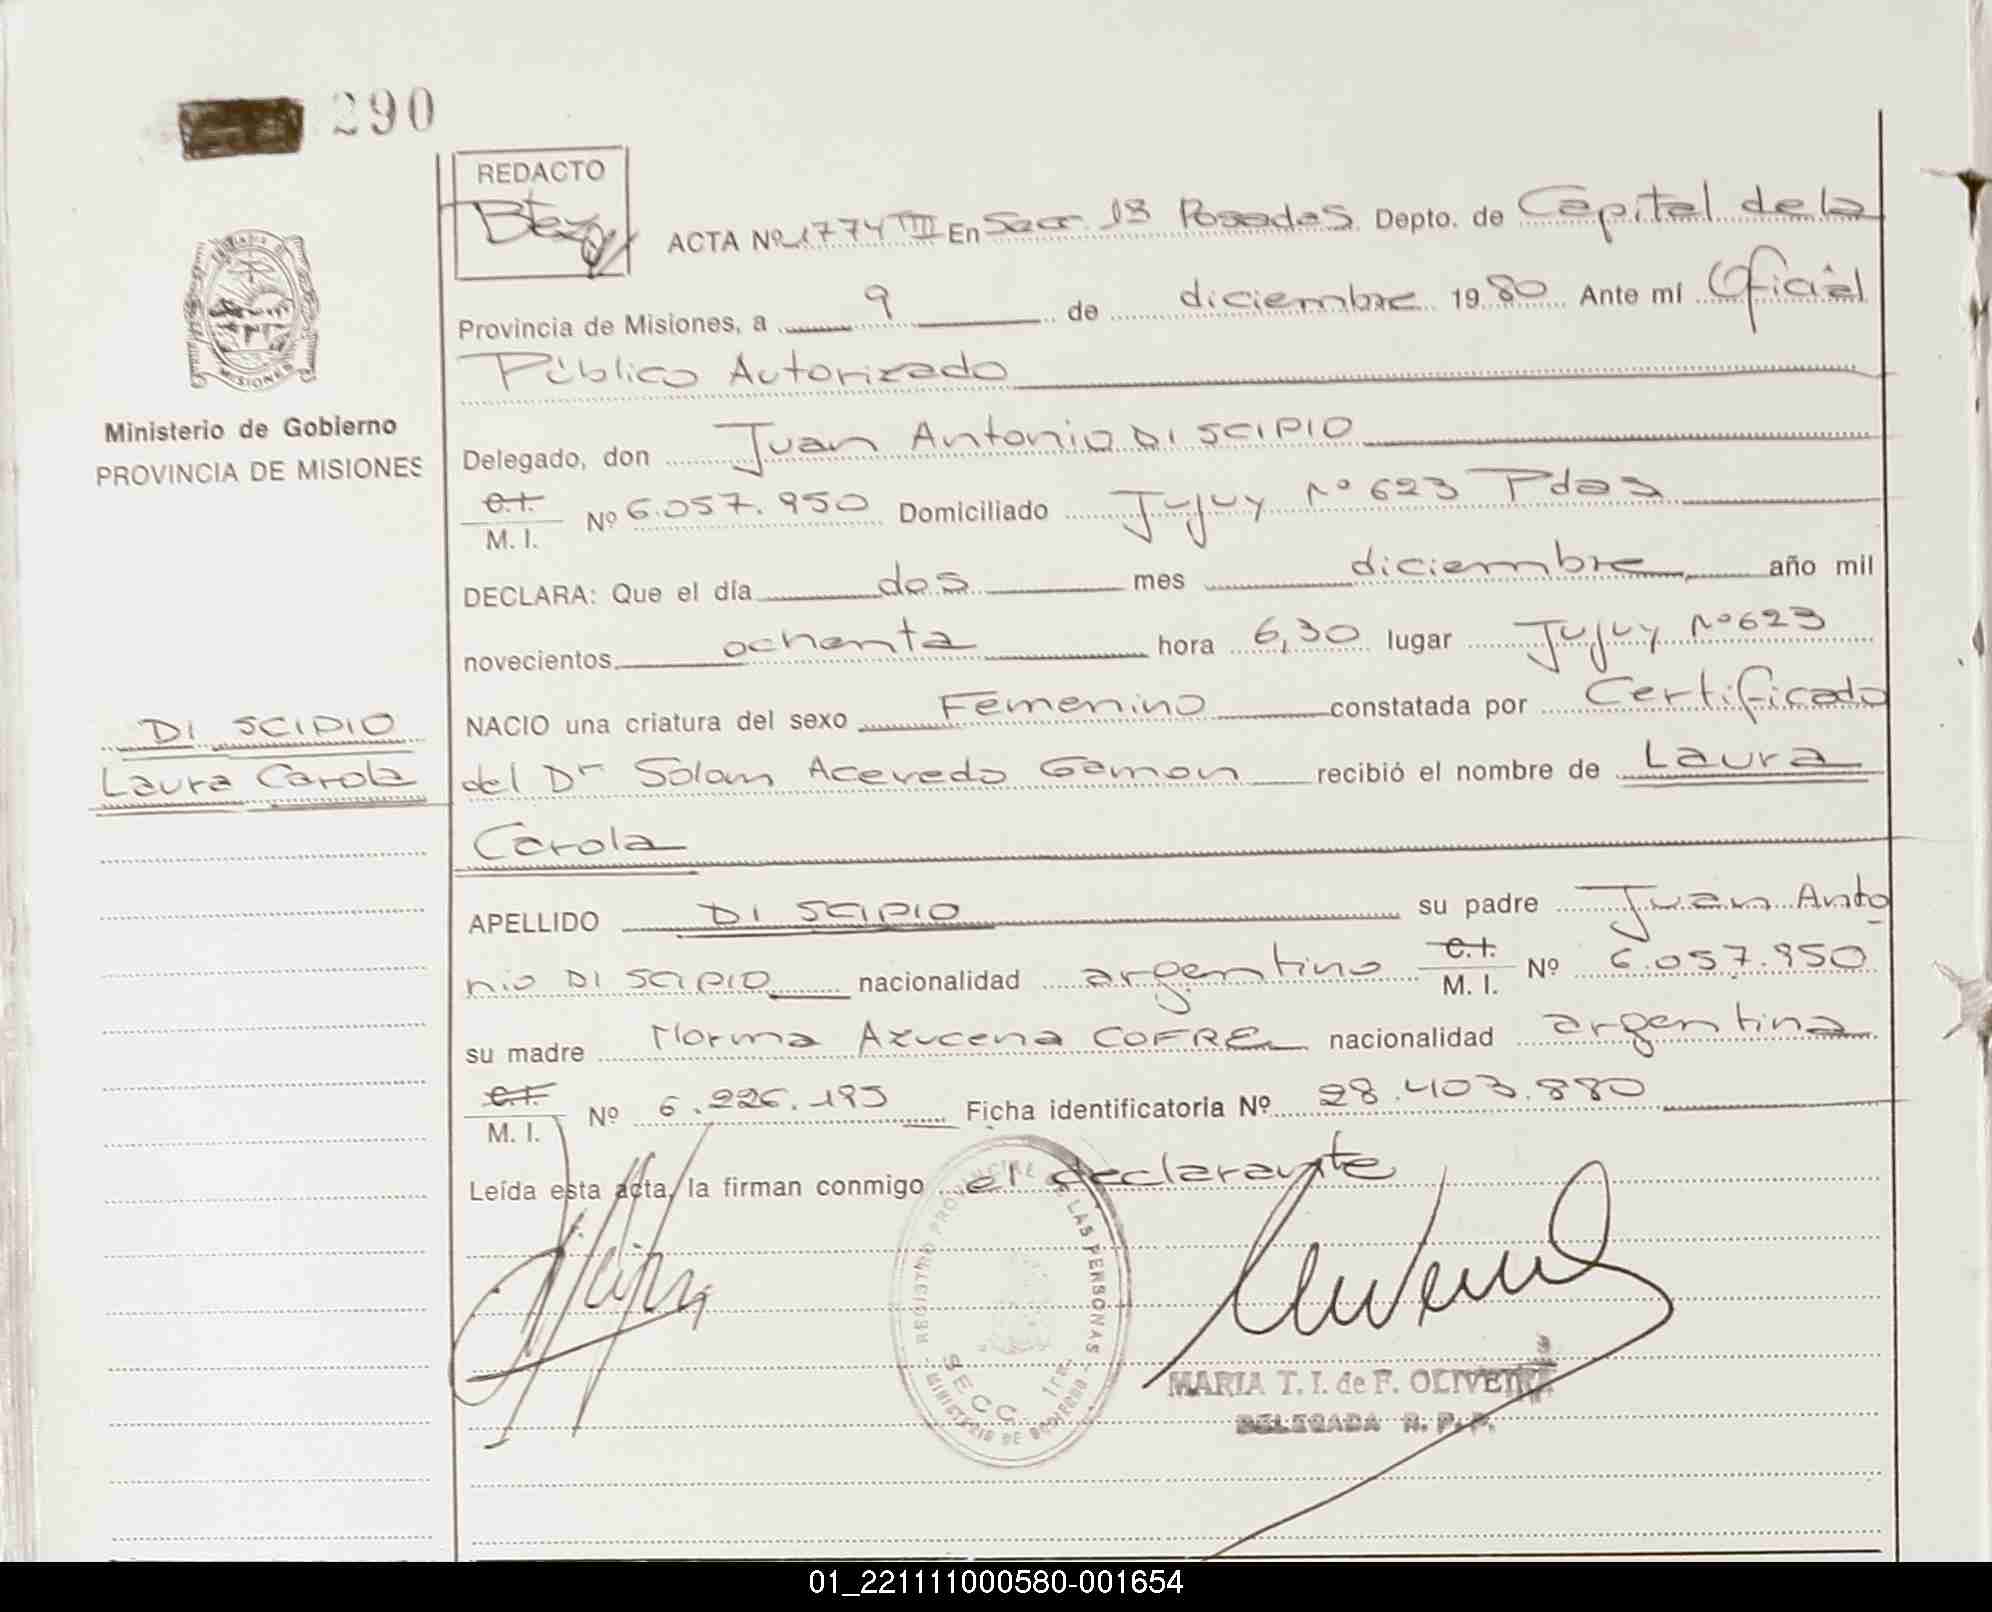 290
REDACTO
ACTA Nº 1774 TIII En Secc. 1ª Posadas Depto. de Capital de la
Provincia de Misiones, a 9 de diciembre 1980 Ante mí Oficial
Público Autorizado
Ministerio de Gobierno
PROVINCIA DE MISIONES
Delegado, don Juan Antonio DI SCIPIO
C.I. M. I. Nº 6.057.950 Domiciliado Jujuy Nº 623 Pdas
DECLARA: Que el día dos mes diciembre año mil
novecientos ochenta hora 6,30 lugar Jujuy Nº 623
NACIO una criatura del sexo Femenino constatada por Certificado
DI SCIPIO
Laura Carola
del Dr Acevedo recibió el nombre de Laura
Carola
APELLIDO DI SCIPIO su padre Juan Anto
nio DI SCIPIO nacionalidad argentino C.I. M. I. Nº 6.057.950
su madre Norma Azucena COFRE nacionalidad argentina
C.I. M. I. Nº 6.226.193 Ficha identificatoria Nº 28.403.880
Leída esta acta, la firman conmigo el declarante
REGISTRO PROVINCIAL DE LAS PERSONAS
SECC. 1ra.
MINISTERIO DE GOBIERNO
MARIA T. I. de F. OLIVEIRA
DELEGADA R. P. P.
01_221111000580-001654